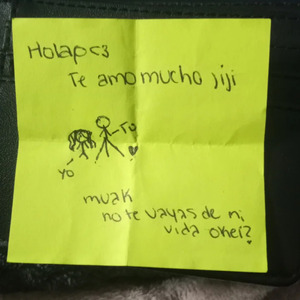 Holap<3
Te amo mucho jiji
Tú
Yó
muak
no te vayas de mi
vida oker?